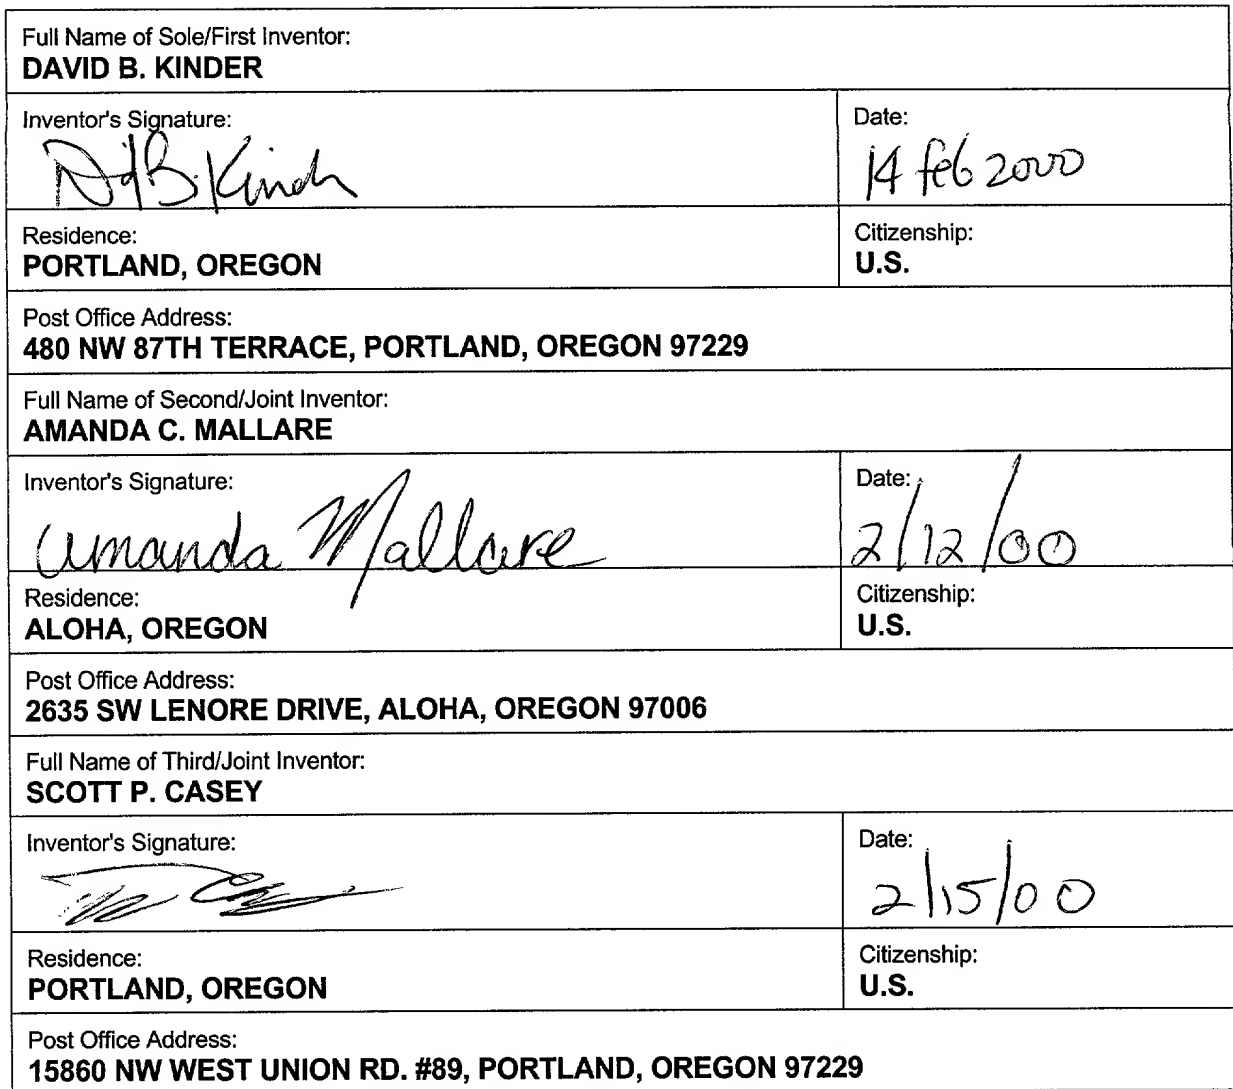 Full Name of Sole/First Inventor:
DAVID B. KINDER
Inventor's Signature:
Date:
D B. Kinder
14 feb 2000
Residence:
PORTLAND, OREGON
Citizenship:
U.S.
Post Office Address:
480 NW 87TH TERRACE, PORTLAND, OREGON 97229
Full Name of Second/Joint Inventor:
AMANDA C. MALLARE
Inventor's Signature:
Date:
Amanda Mallare
2/12/00
Residence:
ALOHA, OREGON
Citizenship:
U.S.
Post Office Address:
2635 SW LENORE DRIVE, ALOHA, OREGON 97006
Full Name of Third/Joint Inventor:
SCOTT P. CASEY
Inventor's Signature:
Date:
2/15/00
Residence:
PORTLAND, OREGON
Citizenship:
U.S.
Post Office Address:
15860 NW WEST UNION RD. #89, PORTLAND, OREGON 97229